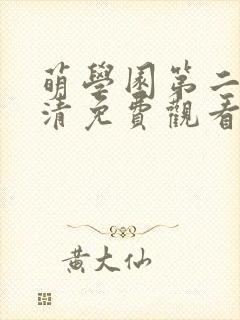 萌學園第二
清免費觀看
黃大仙